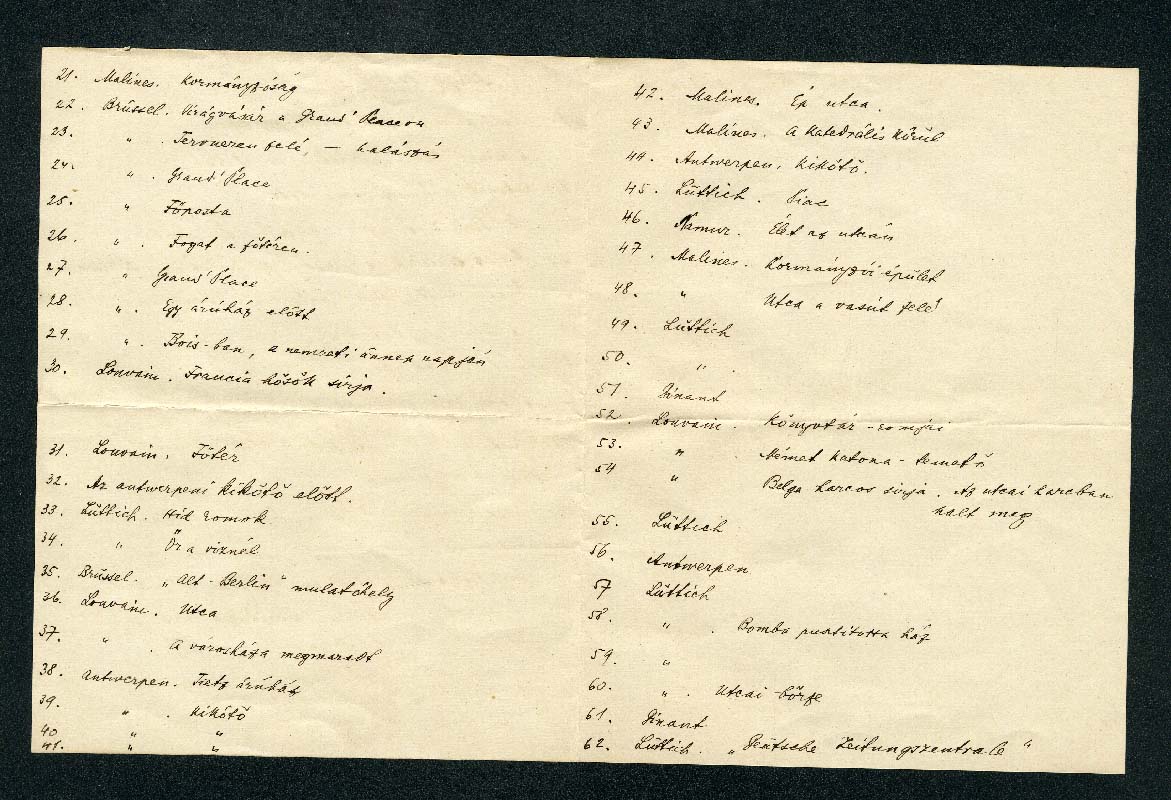 21. Malines. Kormányzóság
22. Brüssel. Virágvásár a Grand' Placeon
23. " . Tervueren felé, —
24. " . Grand' Place
25. " Főposta
26. " . Fogat a főtéren.
27. " Grand' Place
28. " . Egy árúház előtt
29. " . Bois-ban, a nemzeti ünnep napján
30. Louvain. Francia hősök sirja.
31. Louvain. Főtér
32. Az antwerpeni kikötő előtt.
33. Lüttich. Híd romok
34. " Őr a viznél
35. Brüssel. „Alt-Berlin" mulatóhely
36. Louvain. Utca
37. " . A városháza megmaradt
38. Antwerpen. Tietz árúház
39. " . Kikötő
40 " "
41. " "
42. Malines. Ép utca.
43. Malines. A katedrális körül
44. Antwerpen, kikötő.
45. Lüttich. Piac
46. Namur. Élet az utcán
47. Malines. Kormányzói épület
48. " Utca a vasút felé
49. Lüttich
50. " .
51. Dinant
52. Louvain. Könyvtár-romjai
53. " Német katona-temető
54 " Belga harcos sirja. Az utcai harcban
halt meg
55. Lüttich
56. Antwerpen
57 Lüttich
58. " . Bomba pusztította ház
59. "
60. " . Utcai börze
61. Dinant
62. Lüttich. „Deutsche Zeitungszentrale"